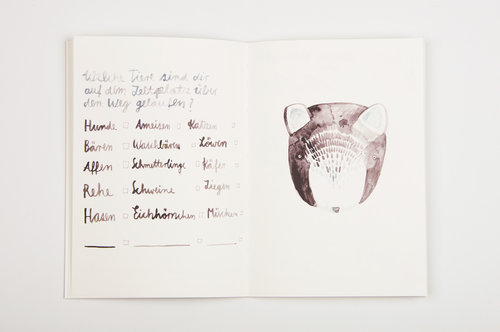 Welche Tiere sind dir
auf dem Zeltplatz über
den Weg gelaufen?
Hunde Ameisen Katzen
Bären Waschbären Löwen
Affen Schmetterlinge Käfer
Rehe Schweine Ziegen
Hasen Eichhörnchen Mücken